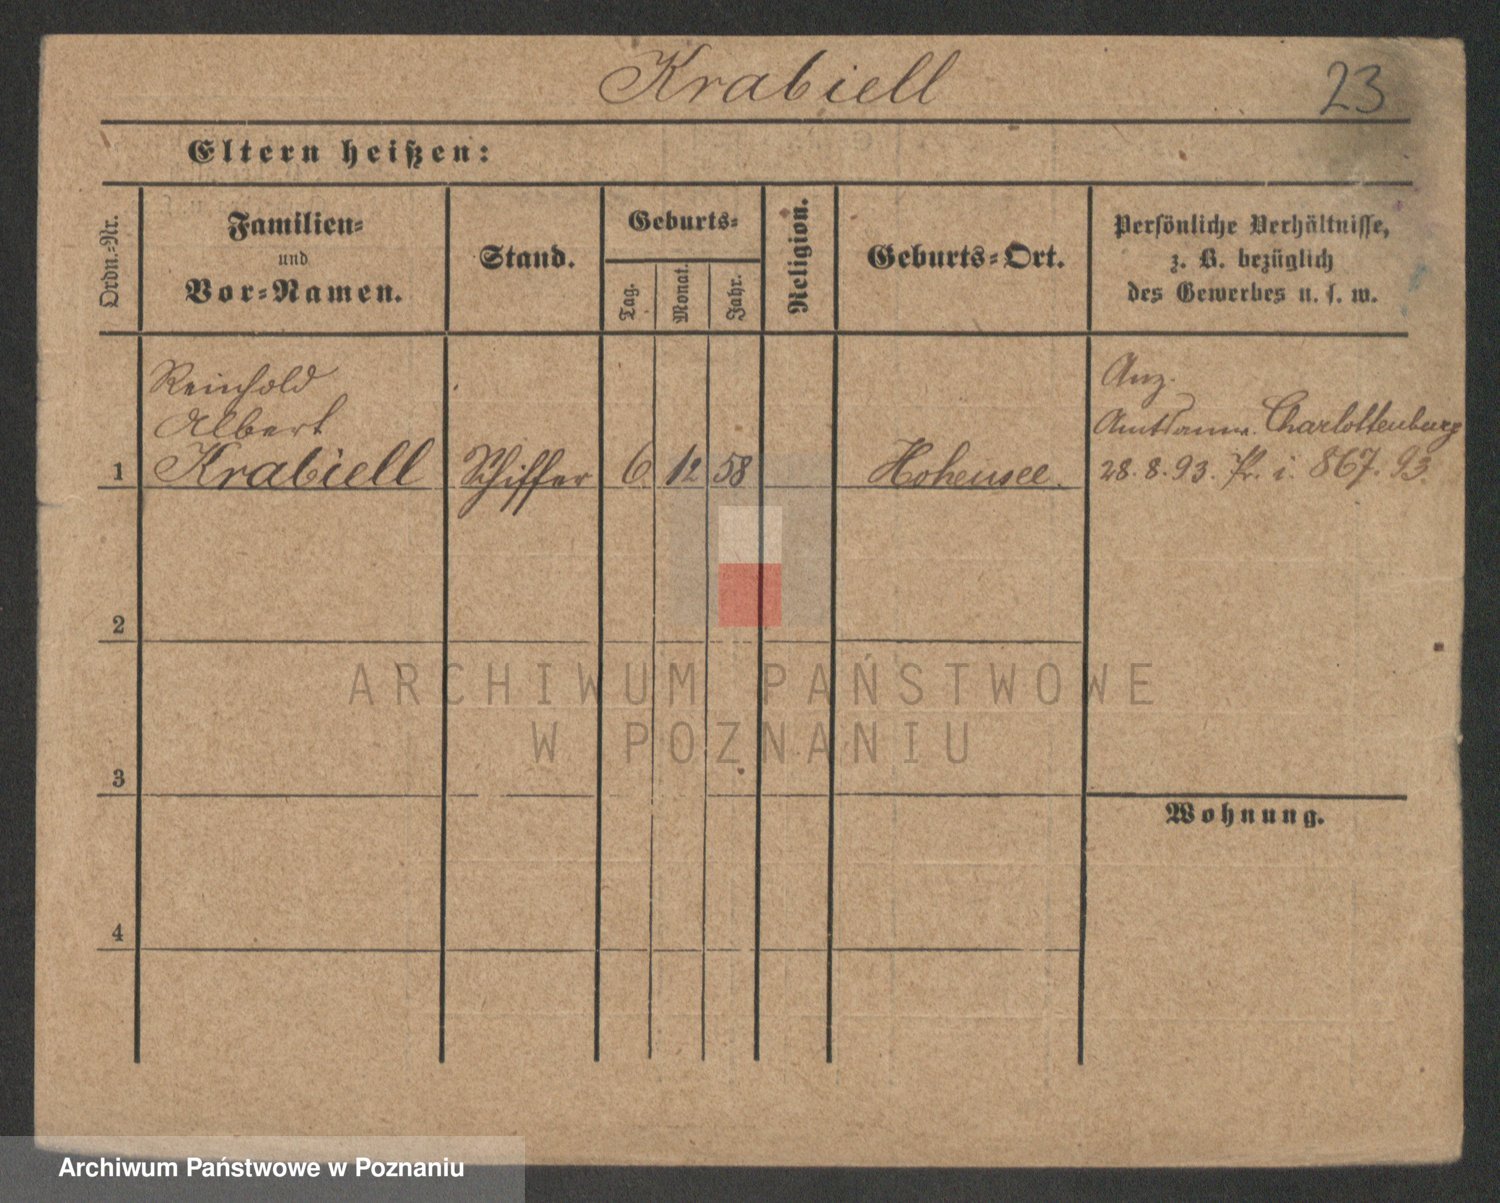 Krabiell
23
Eltern heißen:
Ordn.=Nr.
Familien=
und
Vor=Namen.
Stand.
Geburts=
Tag.
Monat.
Jahr.
Religion.
Geburts=Ort.
Persönliche Verhältnisse,
z. B. bezüglich
des Gewerbes u. s. w.
Reinhold
Albert
1 Krabiell Schiffer 6 12 58 Hohensee.
Anz.
Amtsanw. Charlottenburg
28. 8. 93. i. 867. 93.
2
3
Wohnung.
4
ARCHIWUM PAŃSTWOWE
W POZNANIU
Archiwum Państwowe w Poznaniu